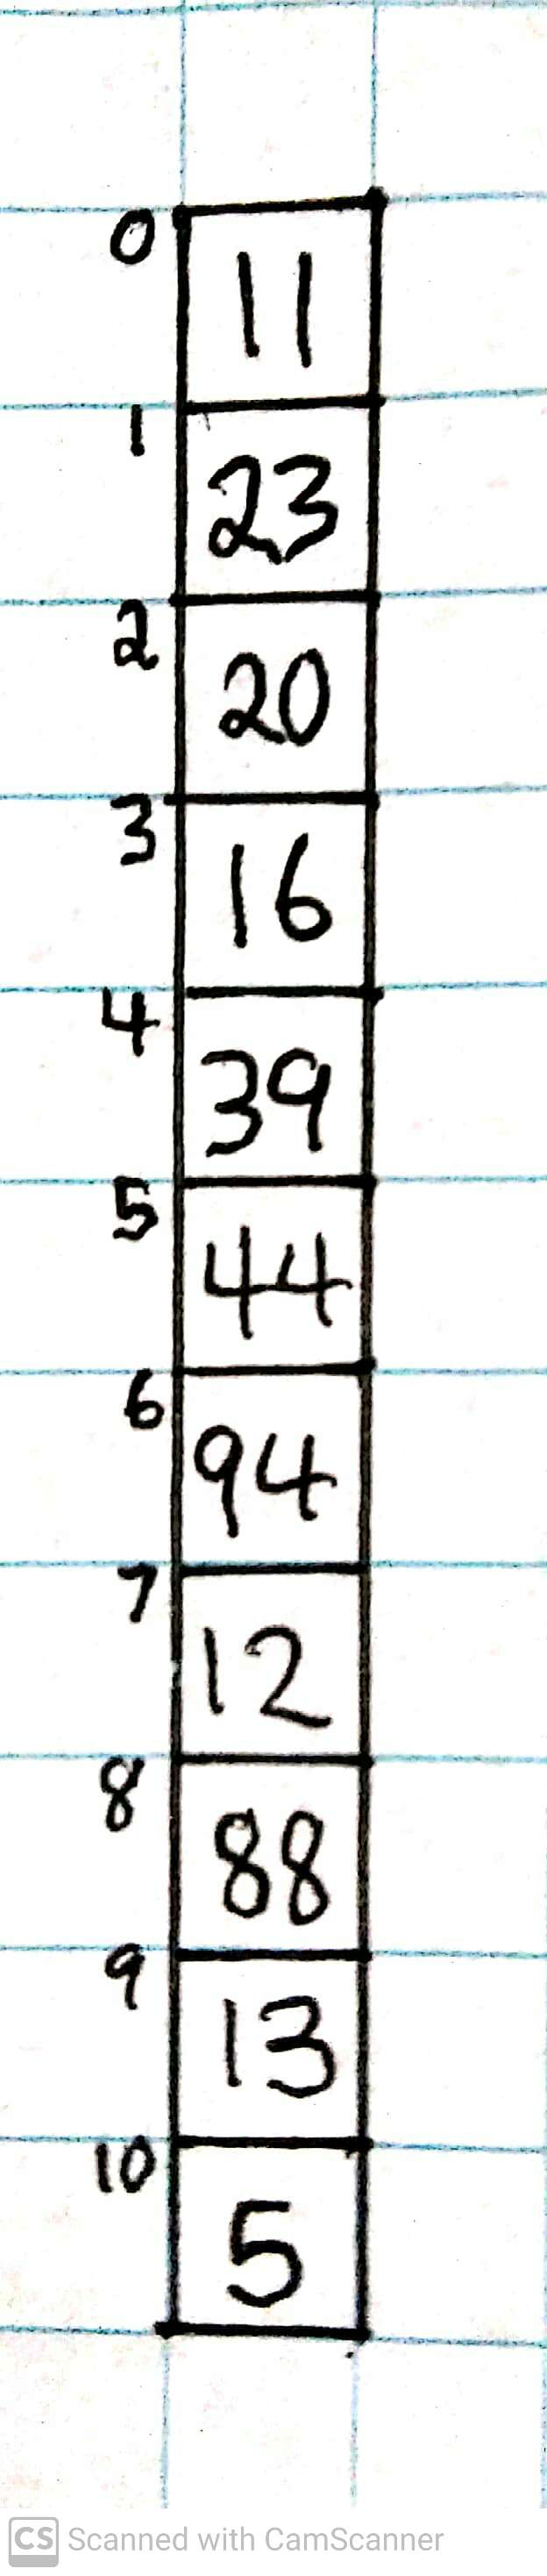 0
11
1
23
2
20
3
16
4
39
5
44
6
94
7
12
8
88
9
13
10
5
CS Scanned with CamScanner